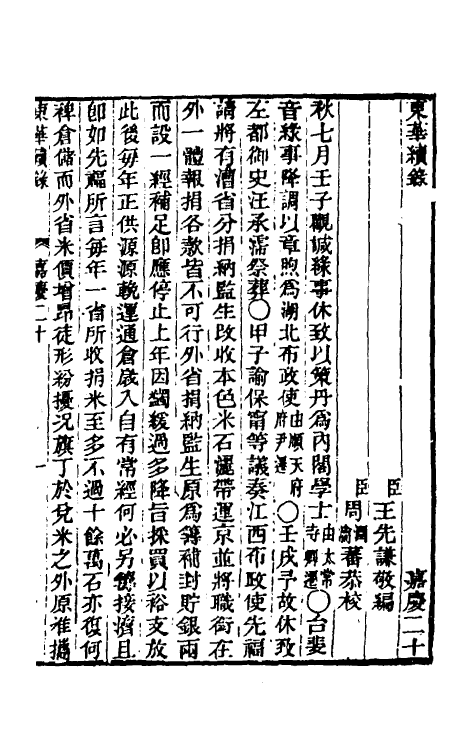 東華續錄　嘉慶二十
臣王先謙敬編
臣周潤蕃周瀹蕃恭校
秋七月壬子觀誠緣事休致以策丹爲內閣學士由太常寺卿遷○台斐
音緣事降調以章煦爲湖北布政使由順天府府尹遷○壬戌予故休致
左都御史汪承霈祭葬○甲子諭保甯等議奏江西布政使先福
請將有漕省分捐納監生改收本色米石灑帶運京並將職銜在
外一體報捐各款皆不可行外省捐納監生原爲籌補封貯銀兩
而設一經補足卽應停止上年因蠲緩過多降旨採買以裕支放
此後每年正供源源輓運通倉歲入自有常經何必另籌接濟且
卽如先福所言每年一省所收捐米至多不過十餘萬石亦復何
裨倉儲而外省米價增昂徒形紛擾況旗丁於兌米之外原准攜
東華續錄　嘉慶二十　一